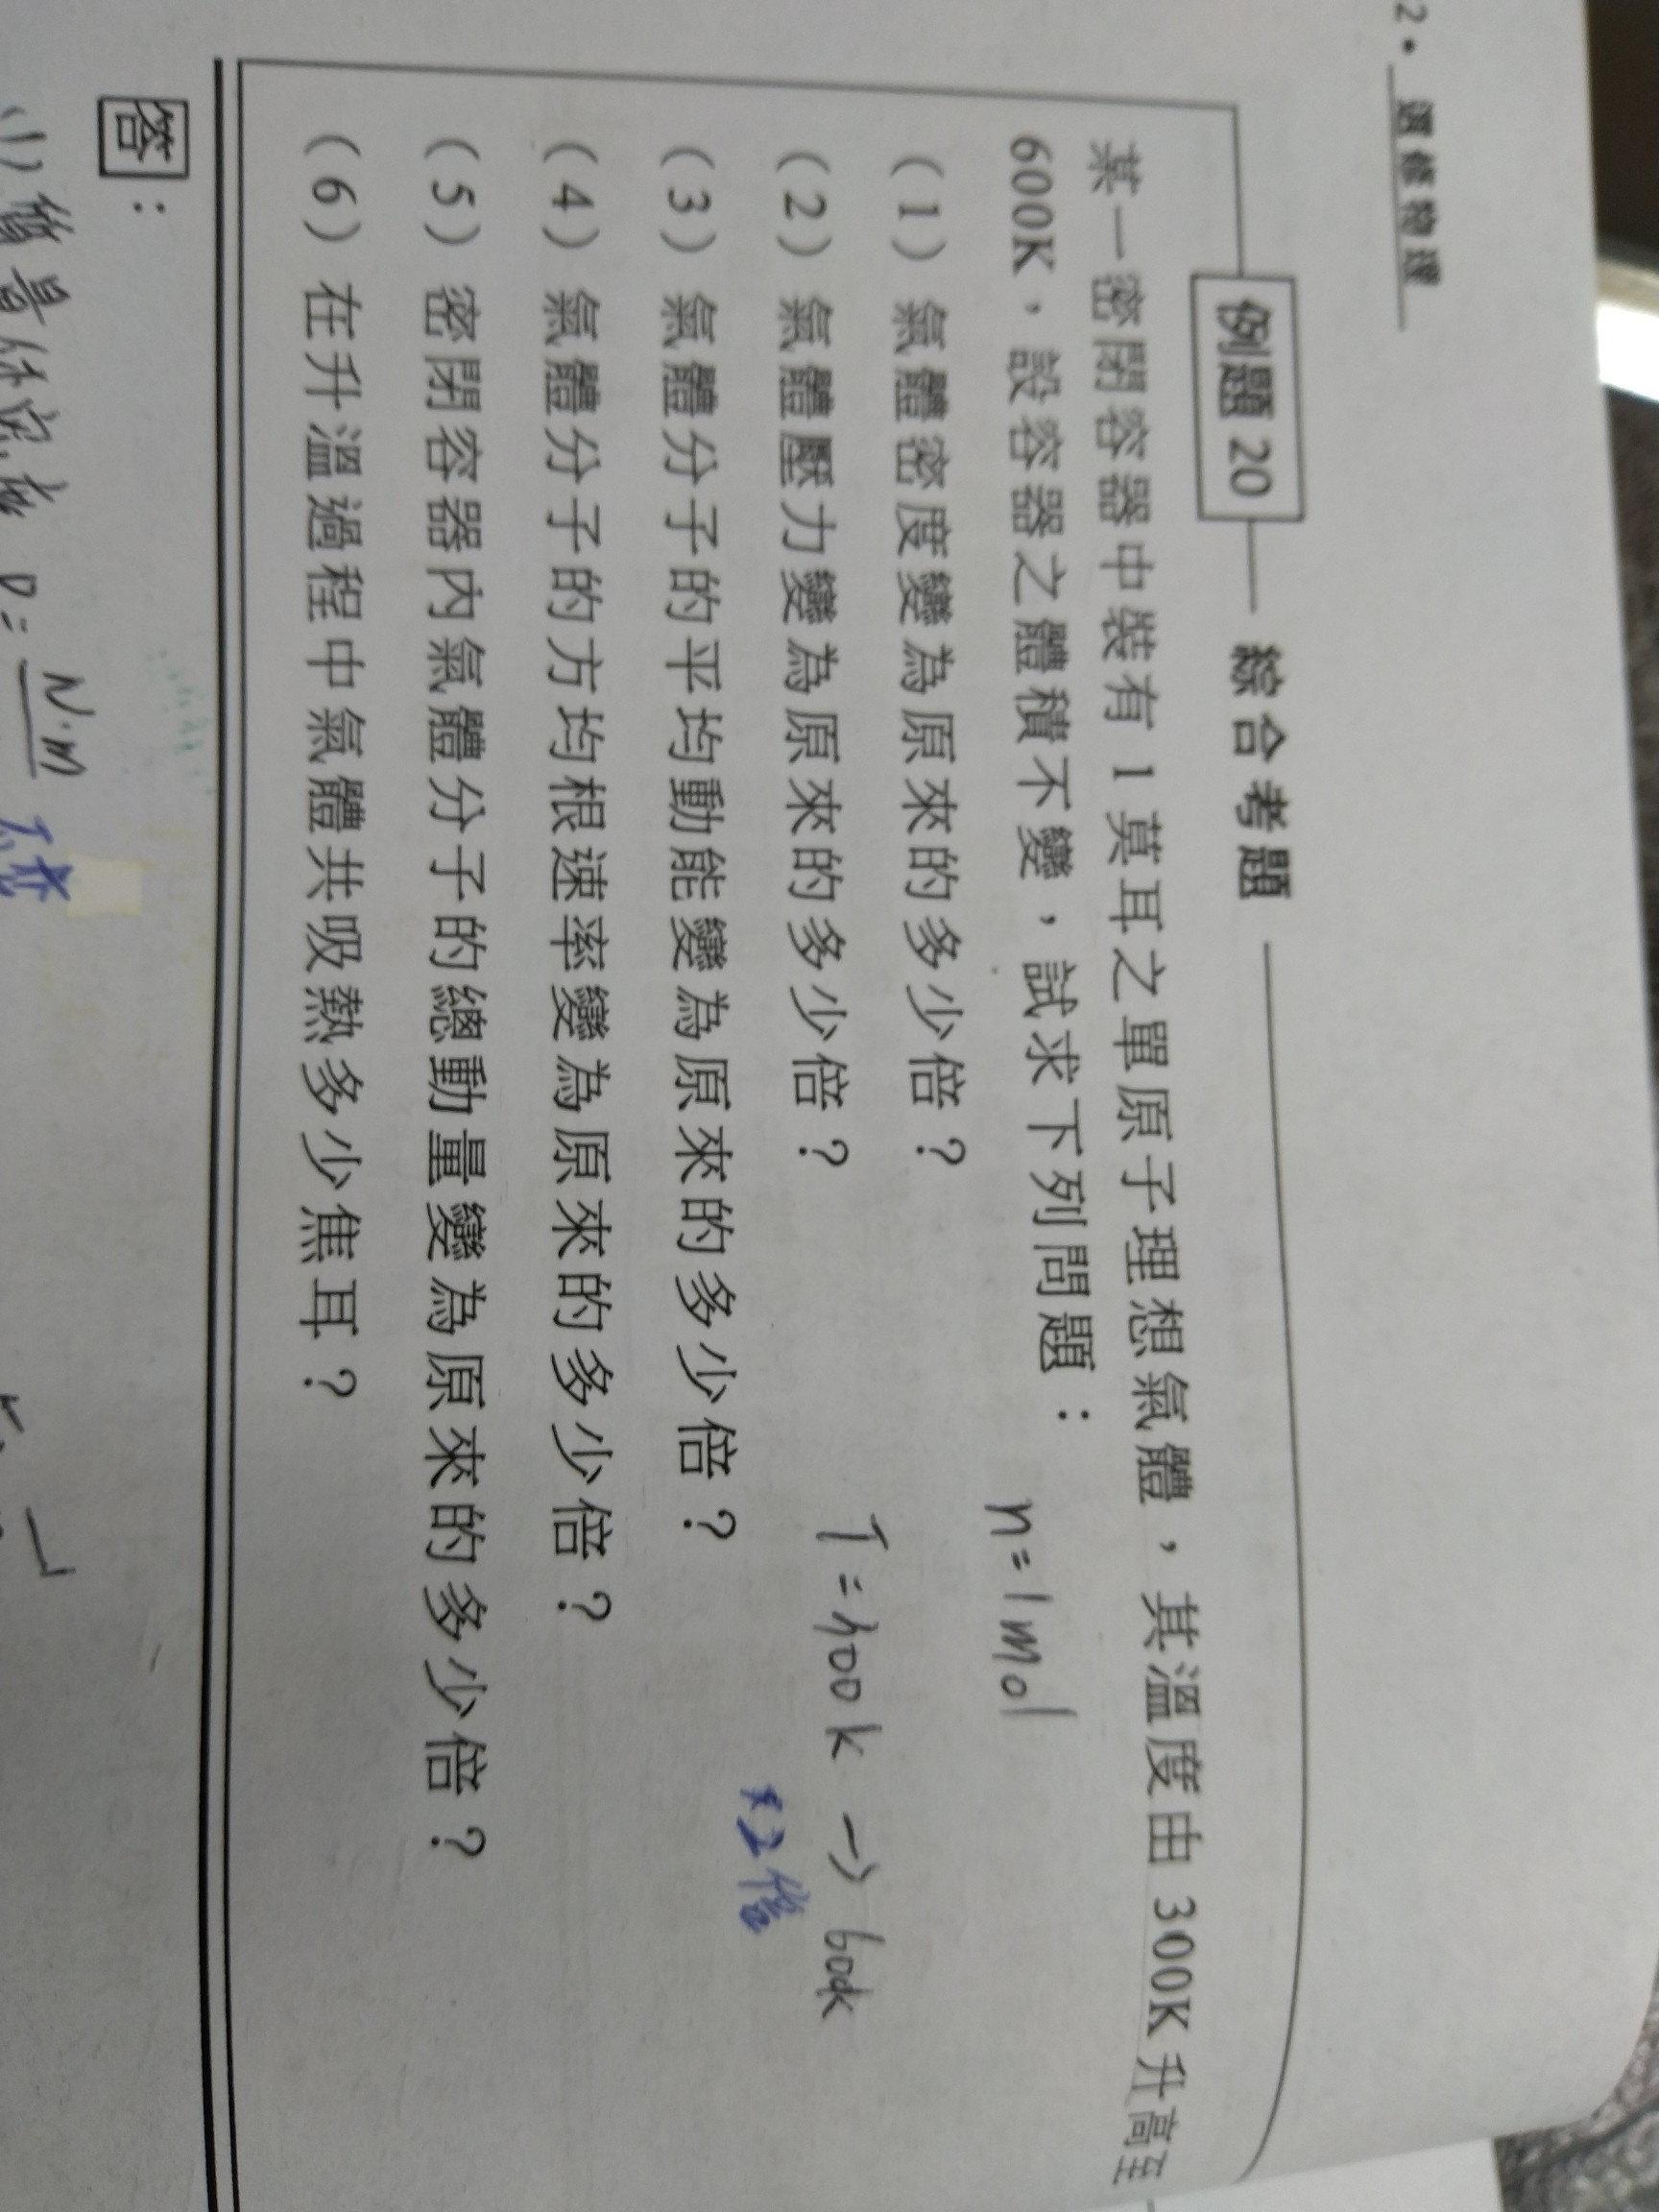 2 • 選修物理
例題 20 綜合考題
某一密閉容器中裝有 1 莫耳之單原子理想氣體，其溫度由 300K 升高至
600K，設容器之體積不變，試求下列問題：
n=1mol
(1) 氣體密度變為原來的多少倍？
(2) 氣體壓力變為原來的多少倍？
T=300k → 600k
x2倍
(3) 氣體分子的平均動能變為原來的多少倍？
(4) 氣體分子的方均根速率變為原來的多少倍？
(5) 密閉容器內氣體分子的總動量變為原來的多少倍？
(6) 在升溫過程中氣體共吸熱多少焦耳？
答：
(1) 質量 D= N·m